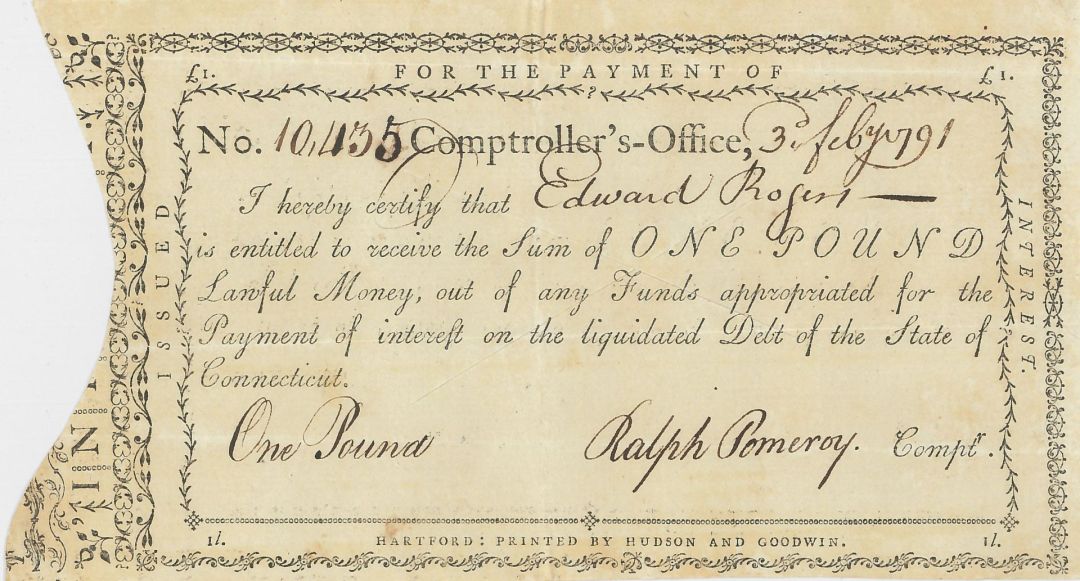 £1. FOR THE PAYMENT OF £1.
No. 10,435 Comptroller's-Office, 3d. feby 1791
I hereby certify that Edward Rogers
is entitled to receive the Sum of ONE POUND
Lawful Money, out of any Funds appropriated for the
Payment of interest on the liquidated Debt of the State of
Connecticut.
One Pound Ralph Pomeroy. Comptr.
1l. HARTFORD: PRINTED BY HUDSON AND GOODWIN. 1l.
ISSUED
INTEREST.